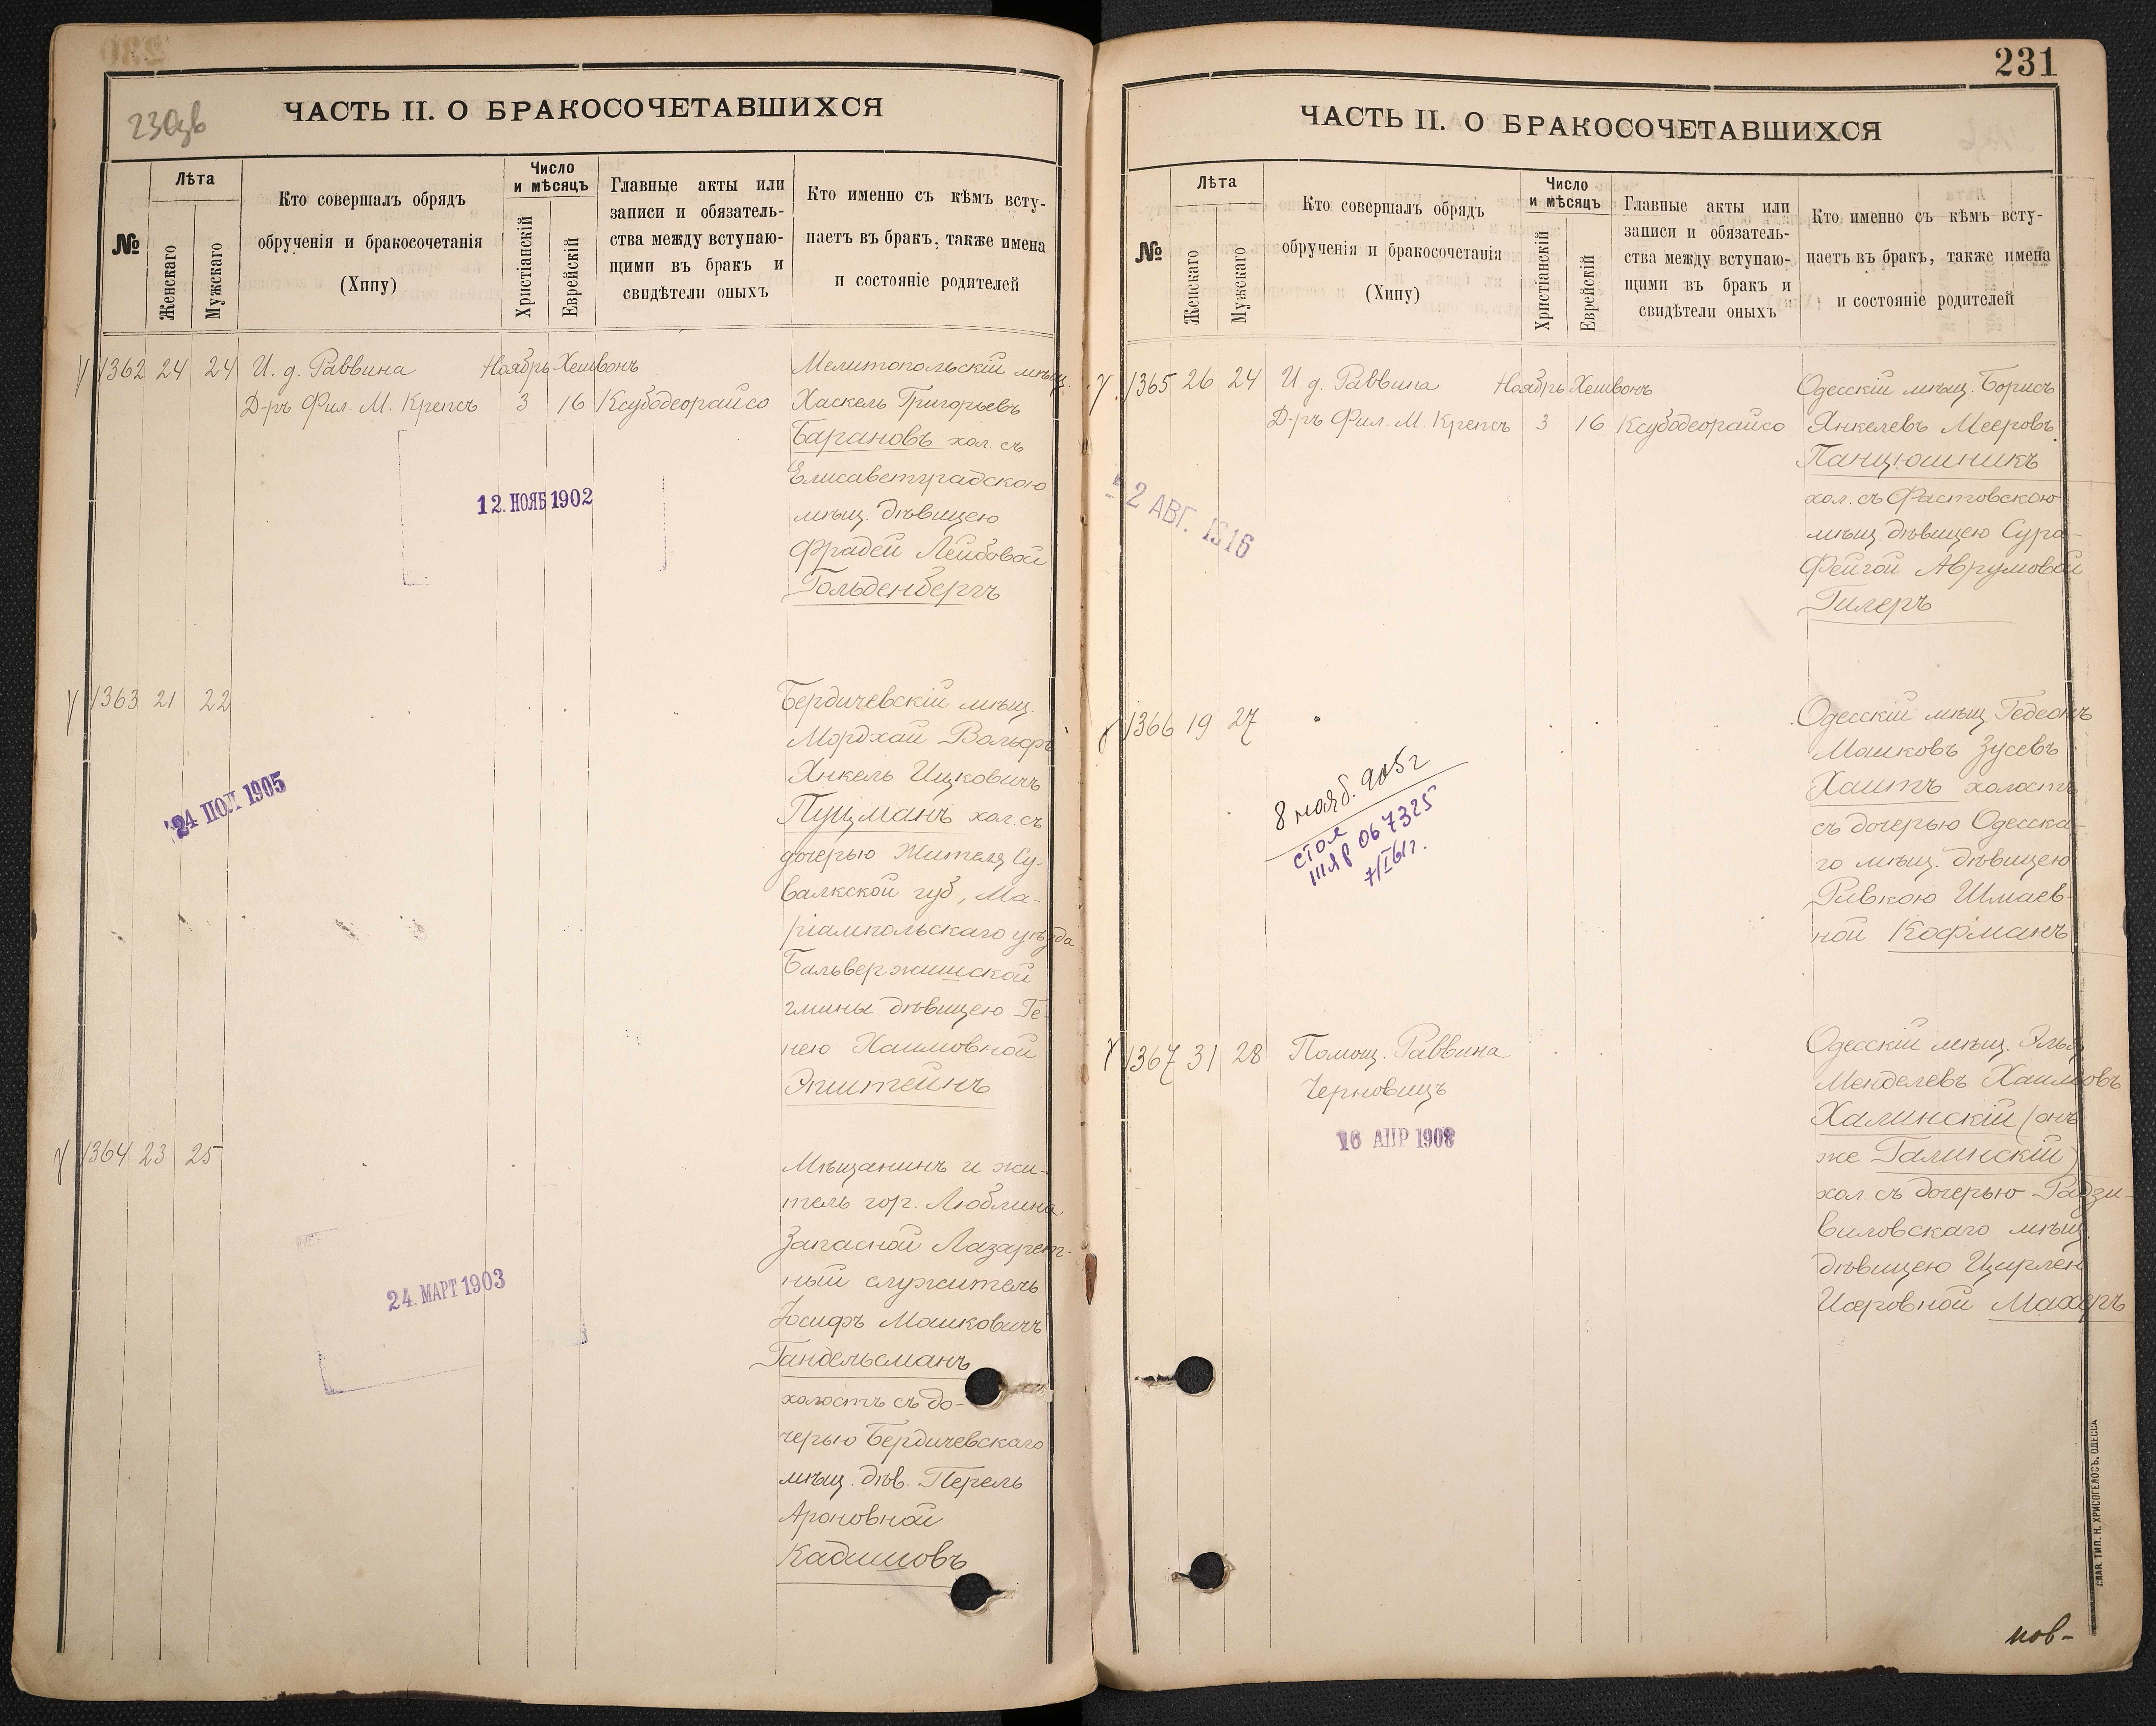 230зв
ЧАСТЬ II. О БРАКОСОЧЕТАВШИХСЯ
№
Лѣта
Женскаго
Мужскаго
Кто совершалъ обрядъ
обрученія и бракосочетанія
(Хипу)
Число
и мѣсяцъ
Христіанскій
Еврейскій
Главные акты или
записи и обязатель-
ства между вступаю-
щими въ бракъ и
свидѣтели оныхъ
Кто именно съ кѣмъ всту-
паетъ въ бракъ, также имена
и состояніе родителей
1362 24 24 И. д. Раввина Ноябрь Хешвонъ Мелитопольскій мѣщ.
Д-ръ Фил. М. Крепсъ 3 16 Ксубодеорайсо Хаскель Григорьевъ
Барановъ хол. съ
Елисаветградскою
12. НОЯБ 1902
мѣщ. дѣвицею
Фрадей Лейбовой
Гольденбергъ
1363 21 22 Бердичевскій мѣщ.
Мордхай Вольфъ
Янкель Ицковичъ
24 ПОЛ 1905
Пуцманъ хол. съ
дочерью Жителя Су-
валкской губ., Ма-
ріампольскаго уѣзда
Бальвержишской
гмины дѣвицею Ге-
нею Хаимовной
Эпштейнъ
1364 23 25 Мѣщанинъ и жи-
тель гор. Люблина,
Запасной Лазарет-
ный служитель
24. МАРТ 1903
Іосифъ Машковичъ
Гандельсманъ
холостъ съ до-
черью Бердичевскаго
мѣщ. дѣв. Перель
Ароновной
Кадишовъ
231
ЧАСТЬ II. О БРАКОСОЧЕТАВШИХСЯ
№
Лѣта
Женскаго
Мужскаго
Кто совершалъ обрядъ
обрученія и бракосочетанія
(Хипу)
Число
и мѣсяцъ
Христіанскій
Еврейскій
Главные акты или
записи и обязатель-
ства между вступаю-
щими въ бракъ и
свидѣтели оныхъ
Кто именно съ кѣмъ всту-
паетъ въ бракъ, также имена
и состояніе родителей
1365 26 24 И. д. Раввина Ноябрь Хешвонъ Одесскій мѣщ. Борисъ
Д-ръ Фил. М. Крепсъ 3 16 Ксубодеорайсо Янкелевъ Мееровъ
Панцюшникъ
2 АВГ. 1916
хол. съ Фастовскою
мѣщ. дѣвицею Сура-
Фейгой Аврумовой
Гилеръ
1366 19 27 Одесскій мѣщ. Гедеонъ
Машковъ Зусевъ
Хаитъ холостъ
8 нояб. 905 г
съ дочерью Одесска-
стол
го мѣщ. дѣвицею
IIIЯР 067325
Ривкою Шмаев-
7/I 61г.
ной Кофманъ
1367 31 28 Помощ. Раввина Одесскій мѣщ. Элья
Черновицъ Менделевъ Хаимовъ
16 АПР 1908
Халинскій (онъ
же Галинскій)
хол. съ дочерью Радзи-
виловскаго мѣщ.
дѣвицею Цирлей
Исеровной Махеръ
СЛАВ. ТИП. Н. ХРИСОГЕЛОСЪ. ОДЕССА
нов-